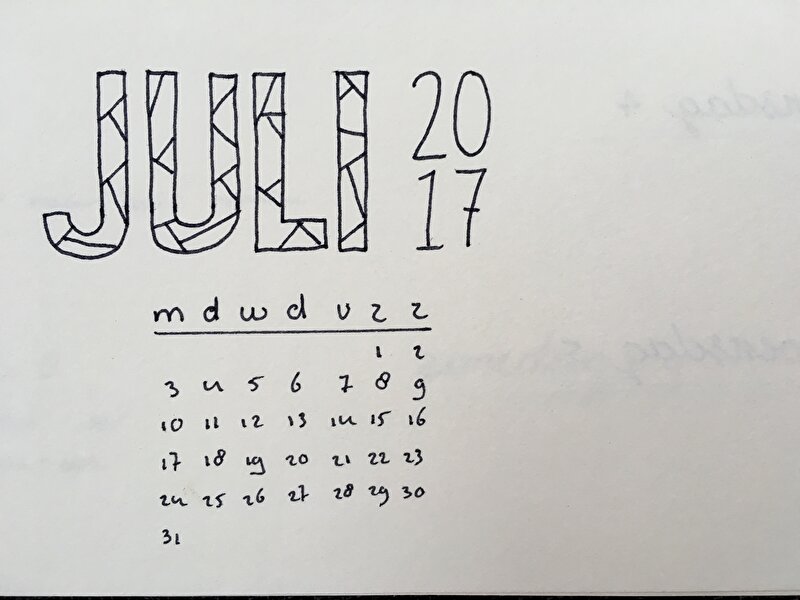 JULI 20
17
m d w d v z z
1 2
3 4 5 6 7 8 9
10 11 12 13 14 15 16
17 18 19 20 21 22 23
24 25 26 27 28 29 30
31